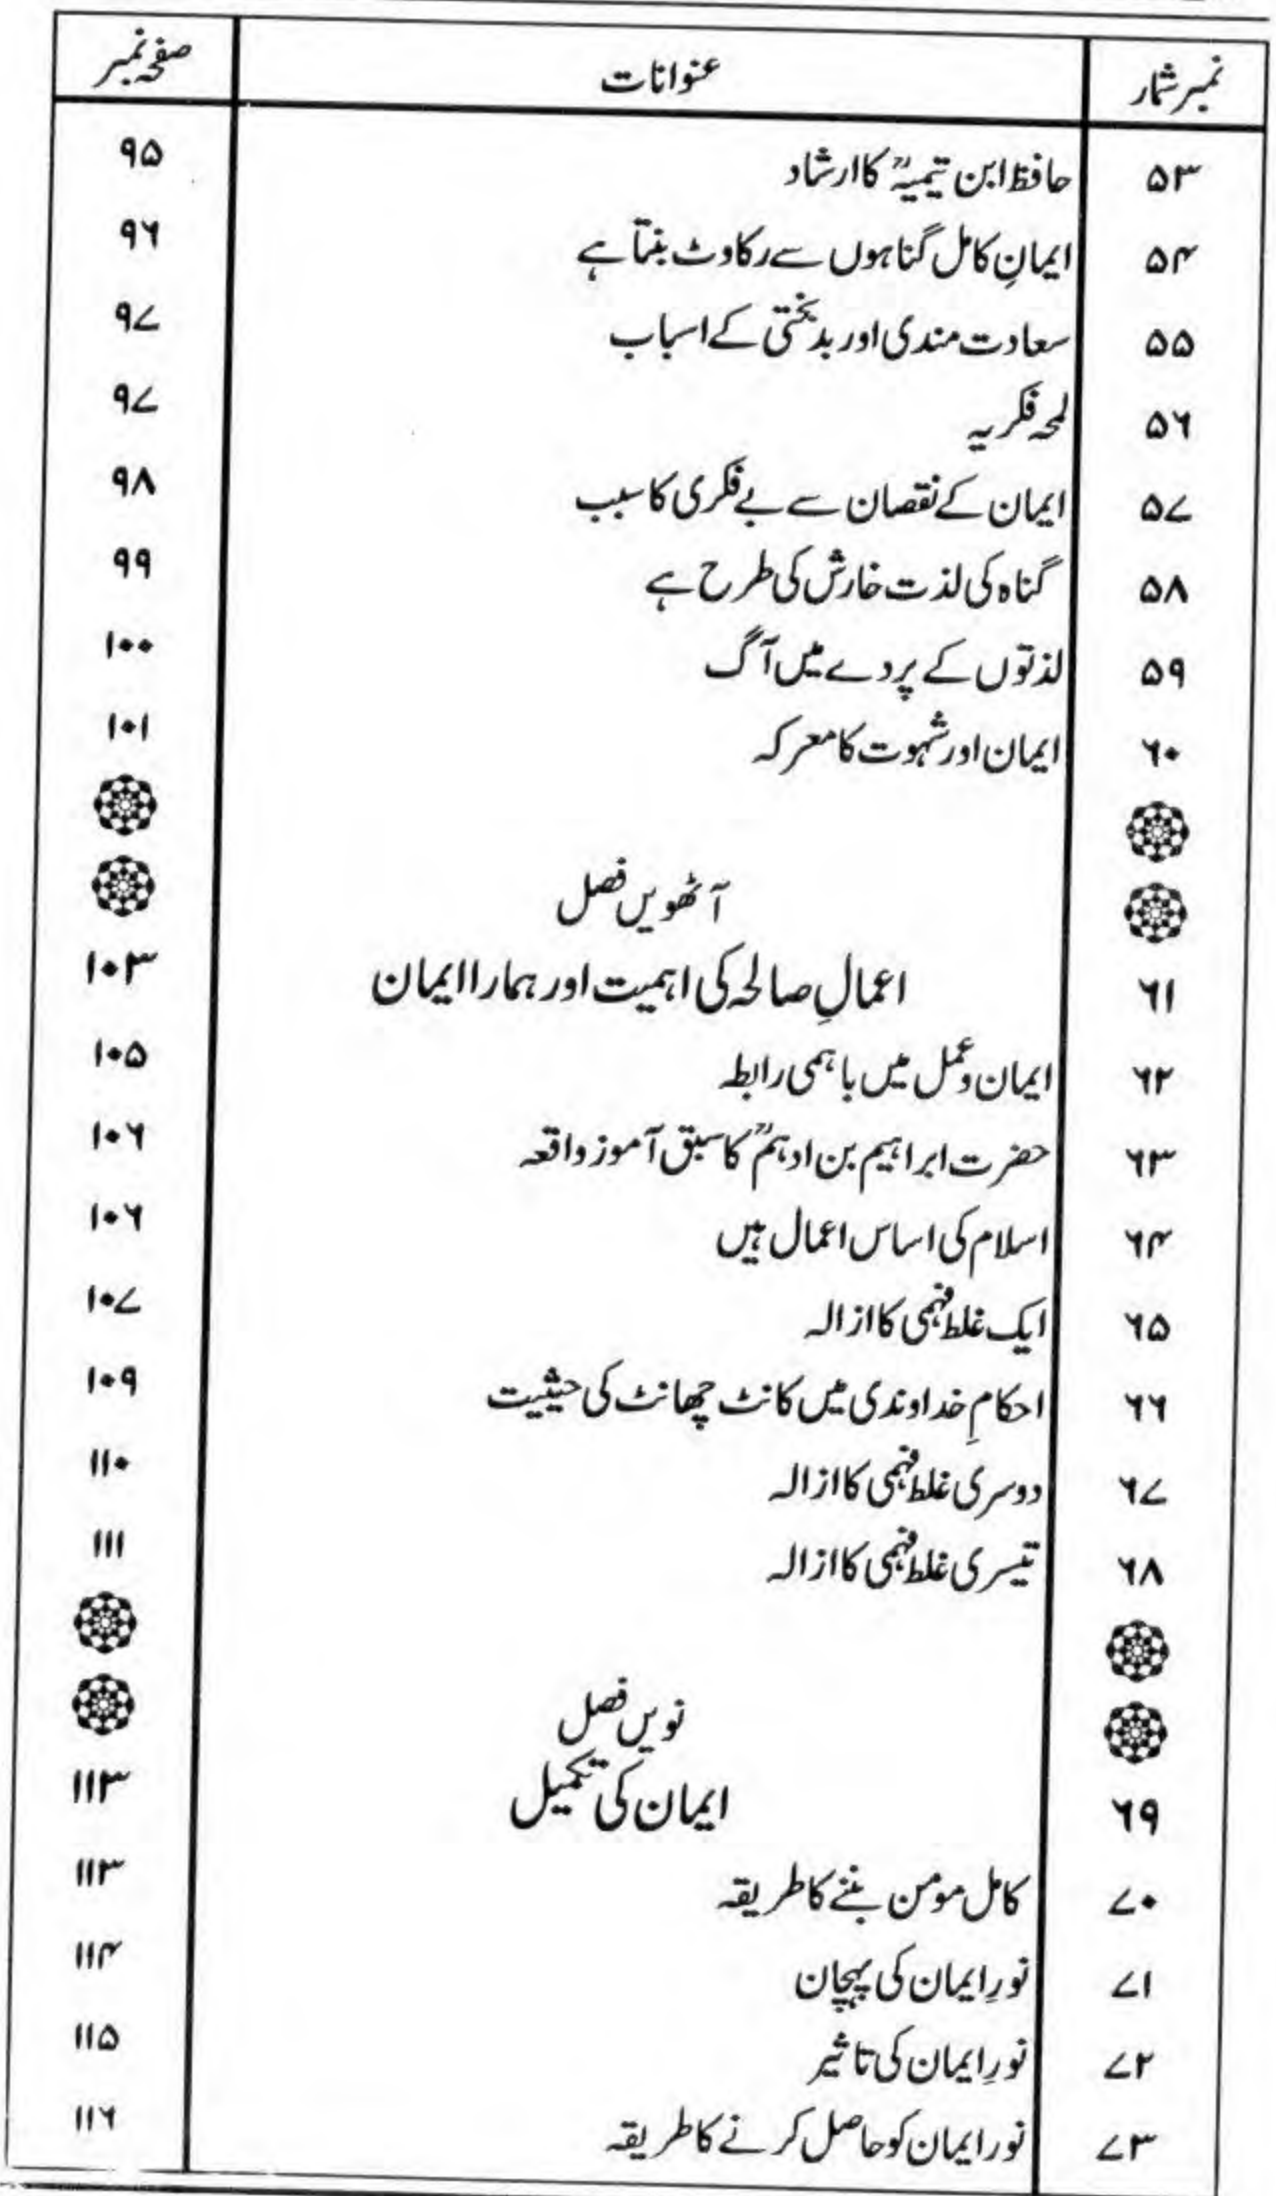 نمبر شمار عنوانات صفحہ نمبر
۵۳ حافظ ابن تیمیہؒ کا ارشاد ۹۵
۵۴ ایمانِ کامل گناہوں سے رکاوٹ بنتا ہے ۹۶
۵۵ سعادت مندی اور بدبختی کے اسباب ۹۷
۵۶ لمحہ فکریہ ۹۷
۵۷ ایمان کے نقصان سے بے فکری کا سبب ۹۸
۵۸ گناہ کی لذت خارش کی طرح ہے ۹۹
۵۹ لذتوں کے پردے میں آگ ۱۰۰
۶۰ ایمان اور شہوت کا معرکہ ۱۰۱
آٹھویں فصل
۶۱ اعمالِ صالحہ کی اہمیت اور ہمارا ایمان ۱۰۳
۶۲ ایمان و عمل میں باہمی رابطہ ۱۰۵
۶۳ حضرت ابراہیم بن ادہمؒ کا سبق آموز واقعہ ۱۰۶
۶۴ اسلام کی اساس اعمال ہیں ۱۰۶
۶۵ ایک غلط فہمی کا ازالہ ۱۰۷
۶۶ احکامِ خداوندی میں کانٹ چھانٹ کی حیثیت ۱۰۹
۶۷ دوسری غلط فہمی کا ازالہ ۱۱۰
۶۸ تیسری غلط فہمی کا ازالہ ۱۱۱
نویں فصل
۶۹ ایمان کی تکمیل ۱۱۳
۷۰ کامل مومن بننے کا طریقہ ۱۱۳
۷۱ نورِ ایمان کی پہچان ۱۱۴
۷۲ نورِ ایمان کی تاثیر ۱۱۵
۷۳ نور ایمان کو حاصل کرنے کا طریقہ ۱۱۶